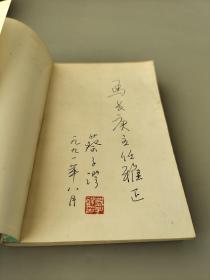 马长庚主任雅正
蔡子谔
一九九一年八月